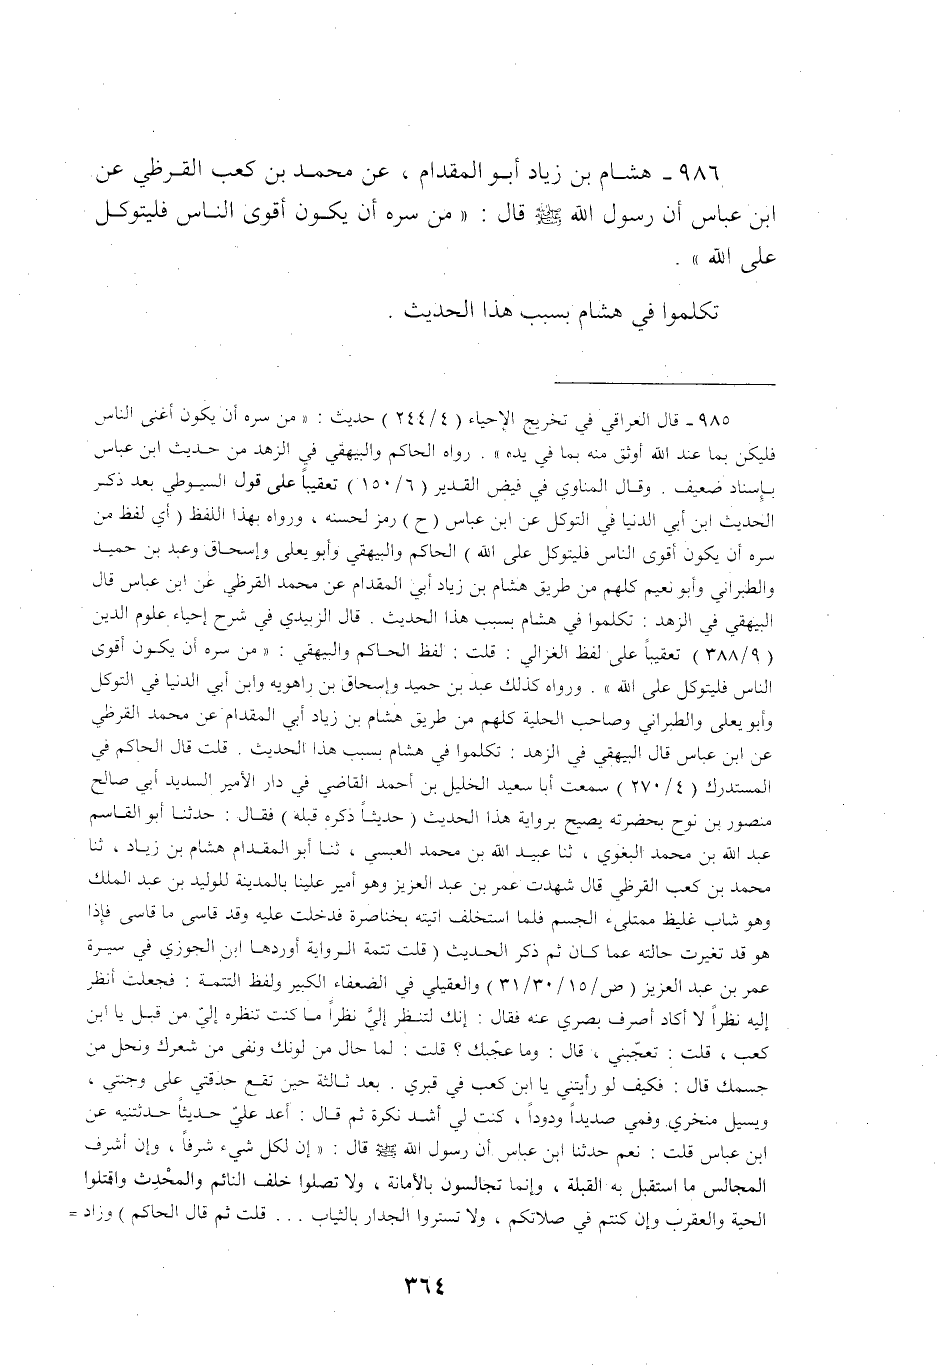 ٩٨٦ - هشام بن زياد أبو المقدام ، عن محمد بن كعب القرظي عن
ابن عباس أن رسول الله ﷺ قال : « من سره أن يكون أقوى الناس فليتوكل
على الله » .
تكلموا في هشام بسبب هذا الحديث .
٩٨٥ - قال العراقي في تخريج الإحياء ( ٢٤٤/٤ ) حديث : « من سره أن يكون أغنى الناس
فليكن بما عند الله أوثق منه بما في يده » . رواه الحاكم والبيهقي في الزهد من حديث ابن عباس
بإسناد ضعيف . وقال المناوي في فيض القدير ( ١٥٠/٦ ) تعقيباً على قول السيوطي بعد ذكر
الحديث ابن أبي الدنيا في التوكل عن ابن عباس ( ح ) رمز لحسنه ، ورواه بهذا اللفظ ( أي لفظ من
سره أن يكون أقوى الناس فليتوكل على الله ) الحاكم والبيهقي وأبو يعلى وإسحاق وعبد بن حميد
والطبراني وأبو نعيم كلهم من طريق هشام بن زياد أبي المقدام عن محمد القرظي عن ابن عباس قال
البيهقي في الزهد : تكلموا في هشام بسبب هذا الحديث . قال الزبيدي في شرح إحياء علوم الدين
( ٣٨٨/٩ ) تعقيباً على لفظ الغزالي : قلت : لفظ الحاكم والبيهقي : « من سره أن يكون أقوى
الناس فليتوكل على الله » . ورواه كذلك عبد بن حميد وإسحاق بن راهويه وابن أبي الدنيا في التوكل
وأبو يعلى والطبراني وصاحب الحلية كلهم من طريق هشام بن زياد أبي المقدام عن محمد القرظي
عن ابن عباس قال البيهقي في الزهد : تكلموا في هشام بسبب هذا الحديث . قلت قال الحاكم في
المستدرك ( ٢٧٠/٤ ) سمعت أبا سعيد الخليل بن أحمد القاضي في دار الأمير السديد أبي صالح
منصور بن نوح بحضرته يصيح برواية هذا الحديث ( حديثاً ذكره قبله ) فقال : حدثنا أبو القاسم
عبد الله بن محمد البغوي ، ثنا عبيد الله بن محمد العبسي ، ثنا أبو المقدام هشام بن زياد ، ثنا
محمد بن كعب القرظي قال شهدت عمر بن عبد العزيز وهو أمير علينا بالمدينة للوليد بن عبد الملك
وهو شاب غليظ ممتلىء الجسم فلما استخلف اتيته بخناصرة فدخلت عليه وقد قاسى ما قاسى فإذا
هو قد تغيرت حالته عما كان ثم ذكر الحديث ( قلت تتمة الرواية أوردها ابن الجوزي في سيرة
عمر بن عبد العزيز ( ص/٣١/٣٠/١٥ ) والعقيلي في الضعفاء الكبير ولفظ التتمة : فجعلت أنظر
إليه نظراً لا أكاد أصرف بصري عنه فقال : إنك لتنظر إليَّ نظراً ما كنت تنظره إليّ من قبل يا ابن
كعب ، قلت : تعجّبني ، قال : وما عجّبك ؟ قلت : لما حال من لونك ونفى من شعرك ونحل من
جسمك قال : فكيف لو رأيتني يا ابن كعب في قبري . بعد ثالثة حين تقع حدقتي على وجنتي ،
ويسيل منخري وفمي صديداً ودوداً ، كنت لي أشد نكرة ثم قال : أعد عليّ حديثاً حدثتنيه عن
ابن عباس قلت : نعم حدثنا ابن عباس أن رسول الله ﷺ قال : « إن لكل شيء شرفاً ، وإن أشرف
المجالس ما استقبل به القبلة ، وإنما تجالسون بالأمانة ، ولا تصلوا خلف النائم والمحْدِث واقتلوا
الحية والعقرب وإن كنتم في صلاتكم ، ولا تستروا الجدار بالثياب ... قلت ثم قال الحاكم ) وزاد =
٣٦٤